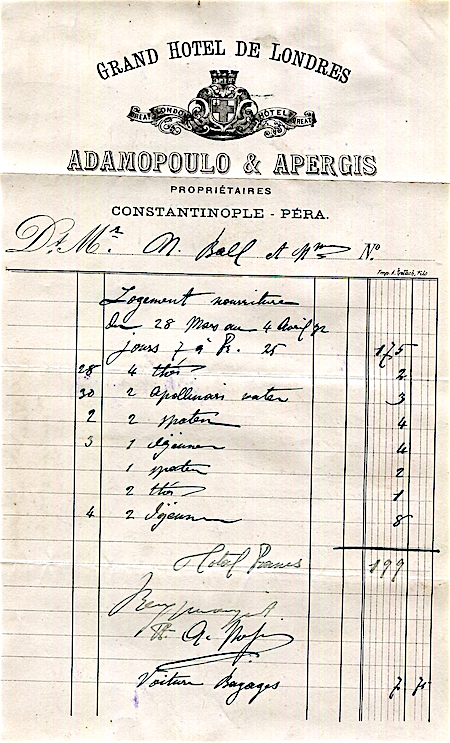 GRAND HOTEL DE LONDRES
GREAT LONDON HOTEL GREAT
ADAMOPOULO & APERGIS
PROPRIÉTAIRES
CONSTANTINOPLE - PÉRA.
Dt. Mr. M. Ball et Mme No.
Logement nourriture
du 28 Mars au 4 Avril 92
Jours 7 à Fr. 25 175
28 4 thés 2
30 2 Apollinaris water 3
2 2 spaten 4
3 1 déjeuner 4
1 spaten 2
2 thés 1
4 2 déjeuner 8
Total Francs 199
A.
Voiture Bagages 7